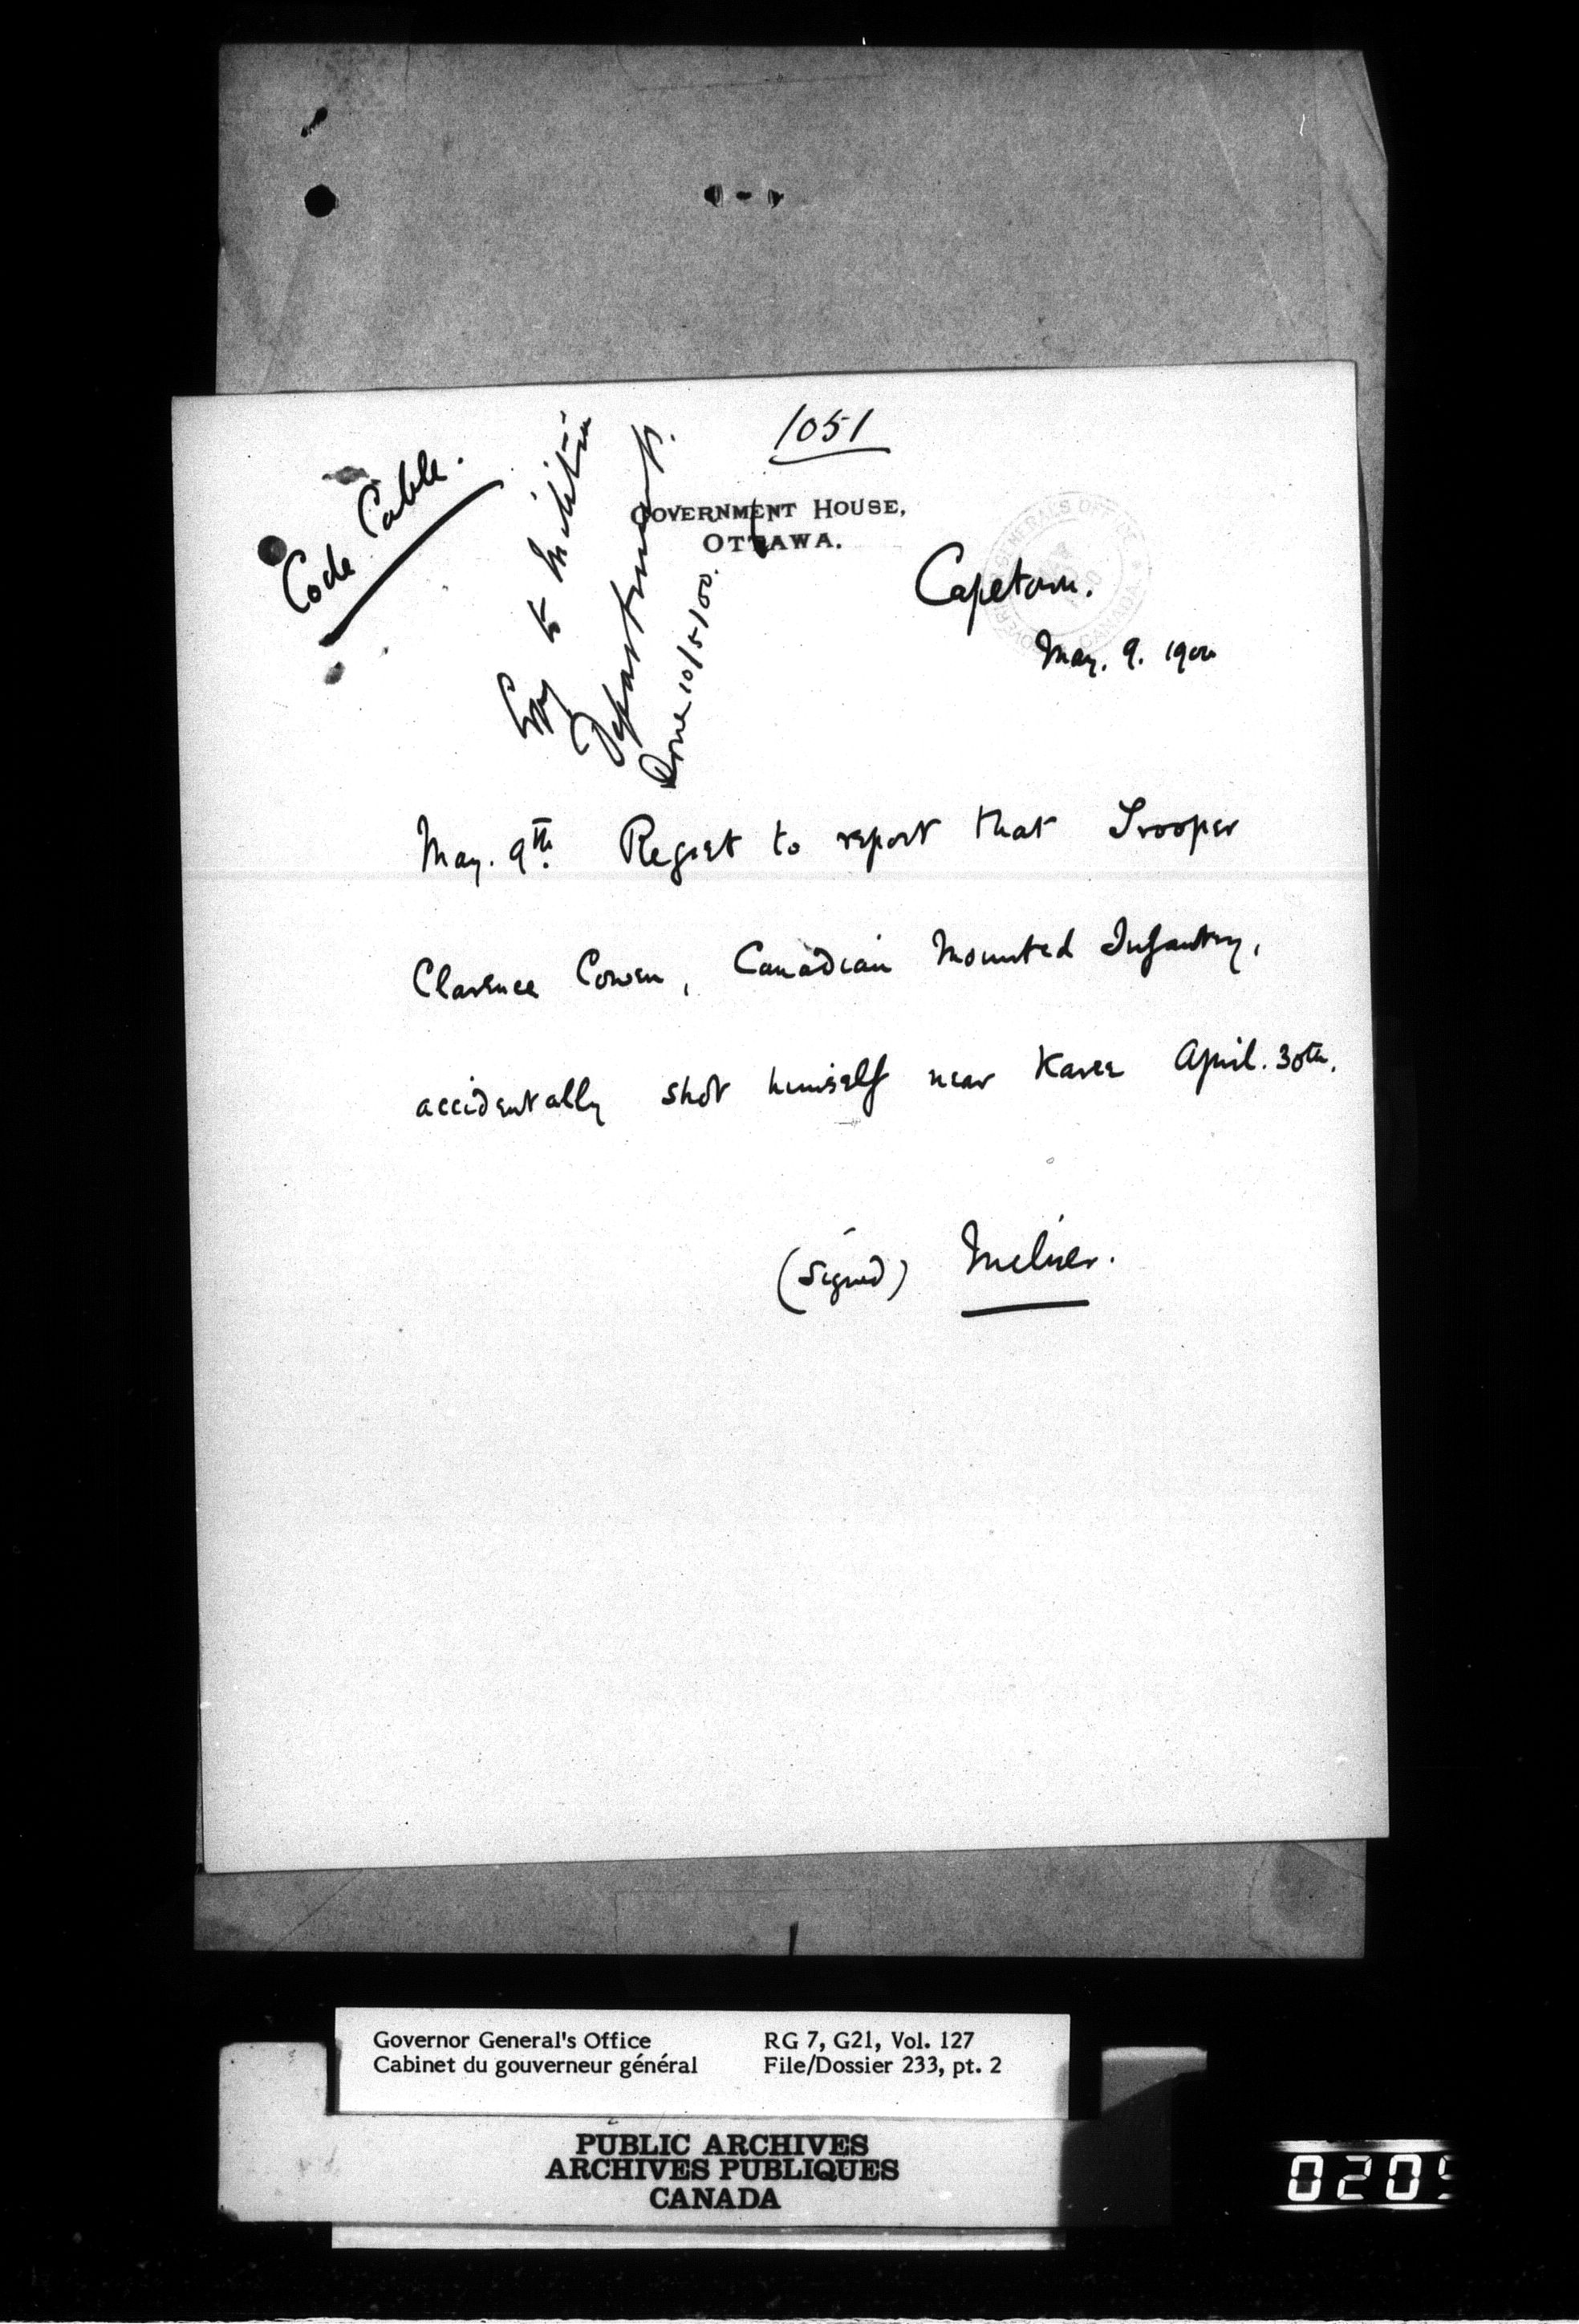 1051
Code Cable.
Copy to Militia
Department.
Done 10/5/00.
GOVERNMENT HOUSE,
OTTAWA.
GOVERNOR GENERAL'S OFFICE
CANADA
Capetown.
May. 9. 1900
May. 9th. Regret to report that Trooper
Clarence Cowen, Canadian Mounted Infantry,
accidentally shot himself near Karee April. 30th.
(Signed) Milner.
Governor General's Office RG 7, G21, Vol. 127
Cabinet du gouverneur général File/Dossier 233, pt. 2
PUBLIC ARCHIVES
ARCHIVES PUBLIQUES
CANADA
020